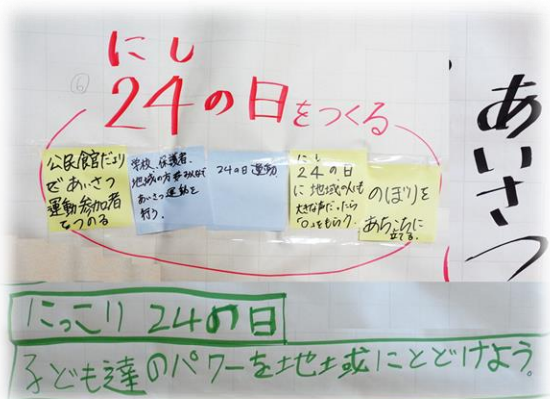 にし
⑥
24の日をつくる
公民館だより
であいさつ
運動参加者
をつのる
学校、保護者、
地域の方々みんなで
あいさつ運動を
行う。
24の日運動
にし
24の日
に地域の人も
大きな声だったら
「0」をもらう。
のぼりを
あちこちに
立てる。
あいさつ
にっこり 24の日
子ども達のパワーを地域にとどけよう。